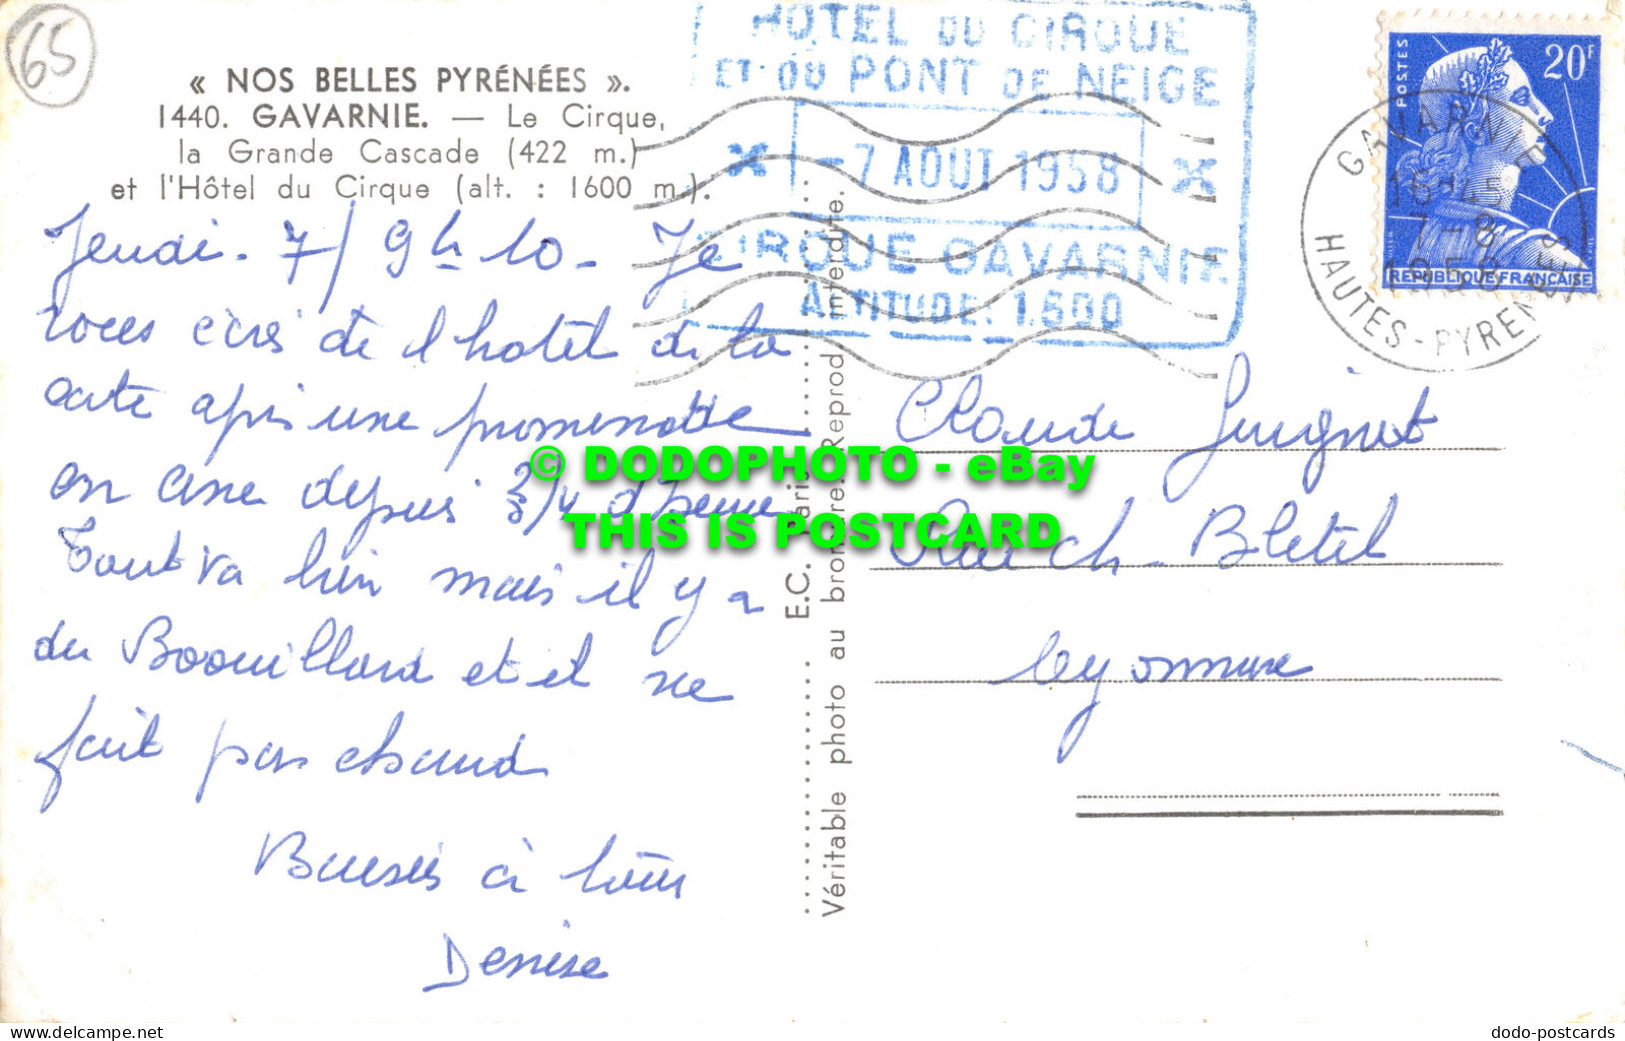 65
« NOS BELLES PYRÉNÉES ».
1440. GAVARNIE. — Le Cirque,
la Grande Cascade (422 m.)
et l'Hôtel du Cirque (alt. : 1600 m.).
HOTEL DU CIRQUE
ET DU PONT DE NEIGE
- 7 AOUT 1958
CIRQUE GAVARNIE
ALTITUDE: 1.600
POSTES
20F
REPUBLIQUE FRANÇAISE
GAVARNIE
16H45
7-8
1958
HAUTES-PYRENEES
Jeudi. 7/ 9h 10 - Je
vous écris de l'hotel de la
carte après une promenade
en ane depuis 3/4 d'heure
Tout va bien mais il y a
du Brouillard et il ne
fait pas chaud
Baisés à tous
Denise
Claude
Rue Ch. Bletel
E.C. Paris
Véritable photo au bromure. Reprod. interdite.
© DODOPHOTO - eBay
THIS IS POSTCARD
www.delcampe.net
dodo-postcards